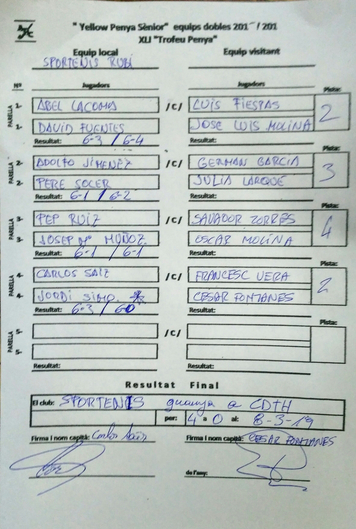 " Yellow Penya Sènior" equips dobles 201 / 201
XLI "Trofeu Penya"
Equip local Equip visitant
SPORTENIS RUBÍ
Nº Jugadors Jugadors Pista:
PARELLA 1- ABEL LACOMA /C/ LUIS 2
1- DAVID FUENTES JOSE LUIS MOLINA
Resultat: 6-3 / 6-4 Resultat:
PARELLA 2- ADOLFO JIMENEZ /C/ GERMAN GARCIA Pista: 3
2- PERE SOLER JULIA LARQUÉ
Resultat: 6-1 / 6-2 Resultat:
PARELLA 3- PEP RUIZ /C/ SALVADOR TORRES Pista: 4
3- JOSEP Mª MUÑOZ OSCAR MOLINA
Resultat: 6-1 / 6-1 Resultat:
PARELLA 4- CARLOS SAIZ /C/ FRANCESC VERA Pista: 2
4- JORDI SIMO CESAR FONTANES
Resultat: 6-3 / 6-0 Resultat:
PARELLA 5- /C/ Pista:
5-
Resultat: Resultat:
Resultat Final
El club: SPORTENIS guanya a CDTH
per: 4 a 0 al: 8-3-19
Firma i nom capità: Carlos Saiz Firma i nom capità: CESAR FONTANES
de l'any: